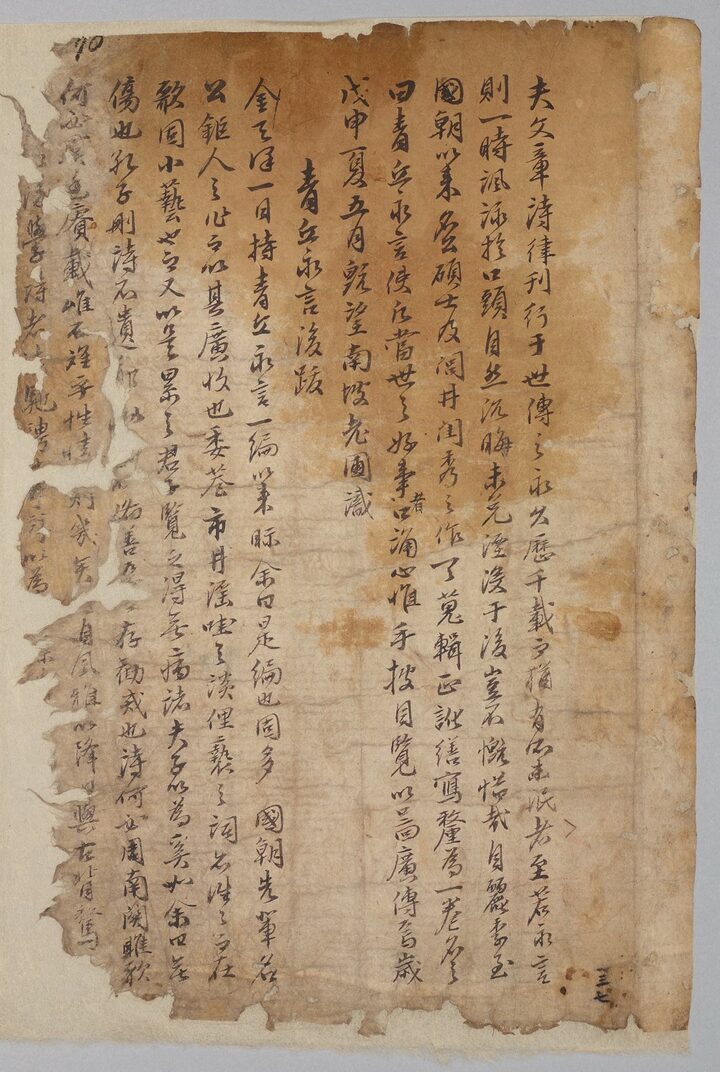 夫文章詩律刊行于世傳之永久歷千載而猶有所未泯者至若永言
則一時諷詠於口頭自然沉晦未免湮沒于後豈不慨惜哉自麗季至
國朝以來名公碩士及閭井閨秀之作一一蒐輯正訛繕寫釐爲一卷名之
曰青丘永言使凡當世之好事者口誦心惟手披目覽以圖廣傳焉歲
戊申夏五月旣望南坡老圃識
青丘永言後跋
金天澤一日持青丘永言一編以來眎余曰是編也固多 國朝先輩名
公鉅人之作而以其廣收也委巷市井滛哇之談俚褻之詞亦往往而在
歌固小藝也而又以是累之君子覽之得無病諸夫子以爲奚如余曰無
傷也孔子刪詩不遺 善 存勸戒也詩何必周南關雎歌
何必虞廷賡載惟不離乎性情則幾矣 自風雅以降日與古背騖
學詩者
70
三七